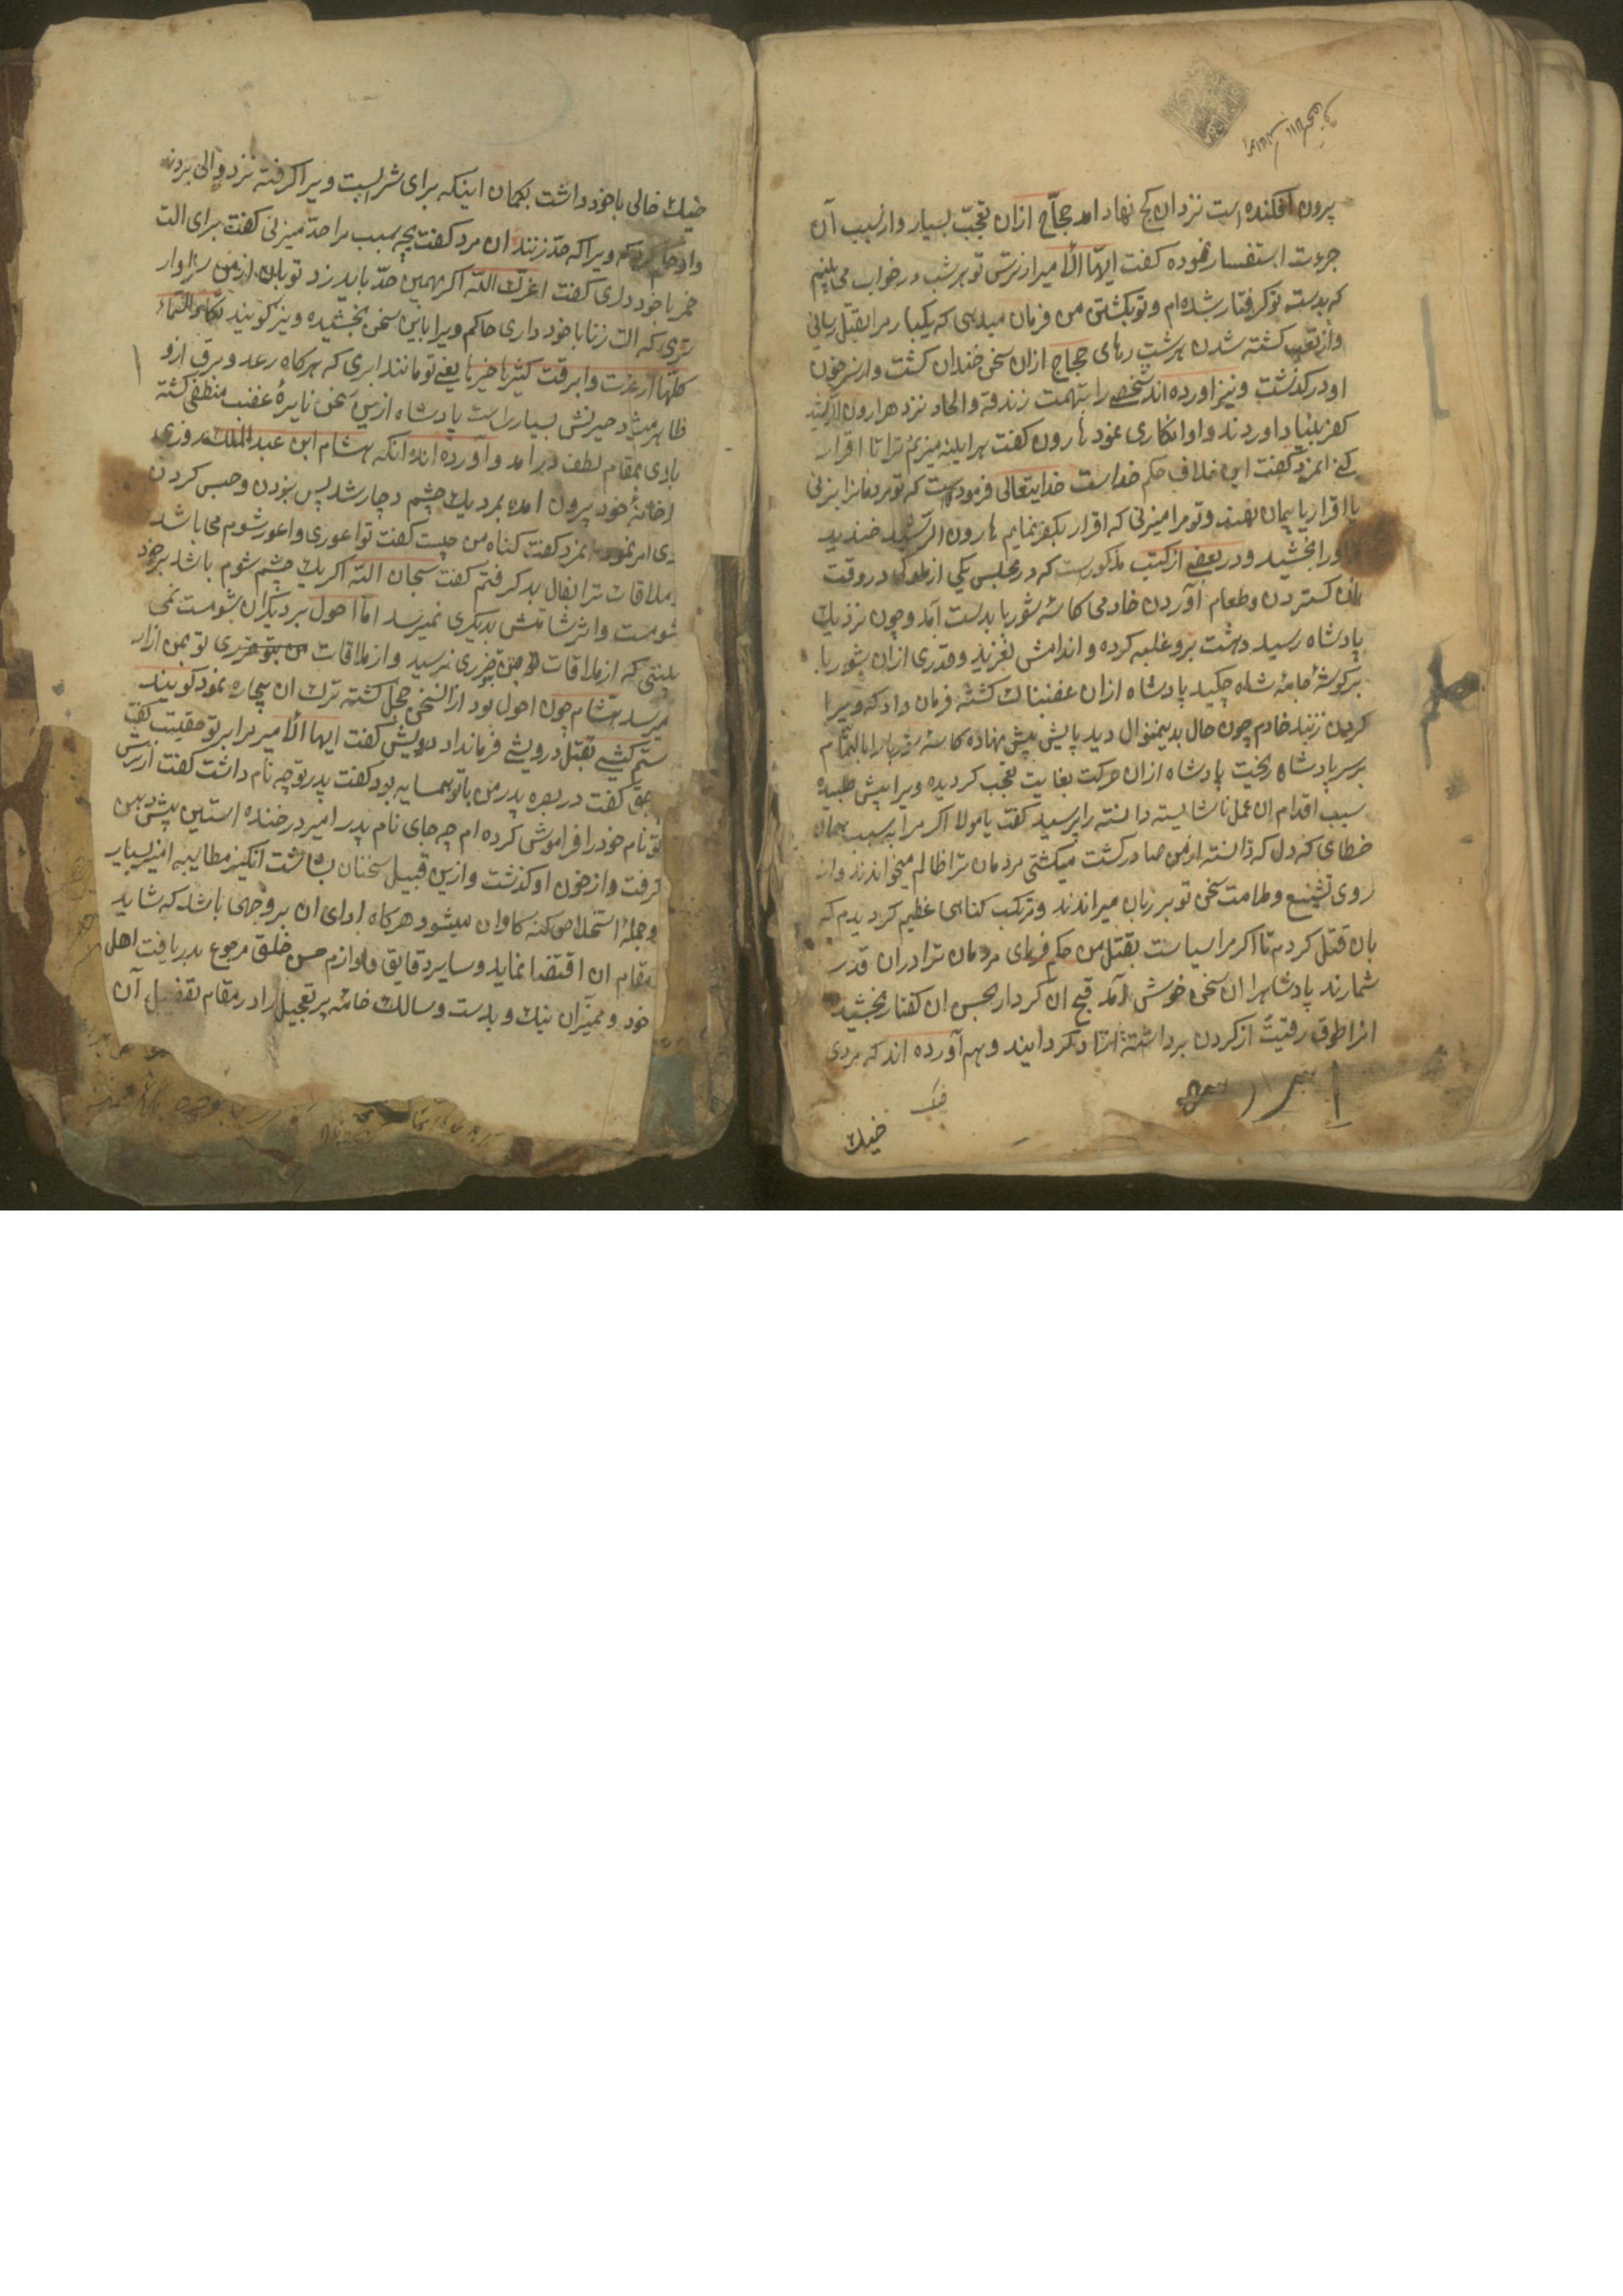 پرون افکنده است نزد ان کج نهاد امد حجاج ازان تعجب بسیار و از سبب آن
جرءت استفسار نموده کفت ایها الامیر از ترس تو هر شب در خواب می بینم
که بدست تو کرفتار شده ام و تو بکشتن من فرمان میدهی که یکبار مرا بقتل رسانی
و از تعب کشته شدن هر شب رهای حجاج ازان سخن خندان کشت و از سر خون
او درکذشت و نیز اورده اند شخصے را بتهمت زندقه و الحاد نزد هارون الرشید
کفر بنیاد اوردند و او انکاری نمود هارون کفت هر اینه میزنم ترا تا اقرار
کنے انمرد کفت این خلاف حکم خداست خدایتعالی فرموده است که تو مردمانرا بزنی
تا اقرار بایمان نمایند و تو مرا میزنی که اقرار بکفر نمایم هارون الرشید خندید
و اورا بخشید و در بعضے از کتب مذکورست که در مجلس یکی از ملوک در وقت
خان کستردن و طعام آوردن خادمی کاسه شوربا بدست آمد و چون نزدیک
پادشاه رسید دهشت برو غلبه کرده و اندامش بلغزید و قدری ازان شوربا
بر کوشهٔ جامهٔ شاه چکید پادشاه ازان غضبناک کشته فرمان داد که ویرا
کردن زنند خادم چون حال بدینمنوال دید پایش پیش نهاده کاسه شوربا را بالتمام
بر سر پادشاه ریخت پادشاه ازان حرکت بغایت تعجب کردیده ویرا پیش طلبیده
سبب اقدام ان عمل ناشایسته دانسته را پرسید کفت یا مولا اکر مرا به سبب همان
خطای که دل که دانسته از من صادر کشت میکشتی مردمان ترا ظالم میخواندند و از
روی تشنیع و ملامت سخن تو بر زبان میراندند و مرتکب کناهی عظیم کردیدم که
بان قتل کردم تا اکر مرا سیاست بقتل من حکم فرمای مردمان ترا دران قدر
شمارند پادشاهرا ان سخن خوش آمد قبح ان کردار بحسن ان کفتار بخشید
انرا طوق رقیت از کردن برداشته ازاد کردانیند و هم آورده اند که مردی
خیک
خیک خالی با خود داشت بکمان اینکه برای شرابست ویرا کرفته نزد والی بردند
و او حکم کرد که ویرا که حد زنند ان مرد کفت بچه سبب مرا حد میزنی کفت برای الت
خمر با خود داری کفت اعزک الله اکر بهمین حد باید زد تو بان از من سزاوار
تری که الت زنا با خود داری حاکم ویرا باین سخن بخشیده و نیز کویند
کلها ارعدت و ابرقت کثیرها خیرها یعنے تو مانند ابری که هرکاه رعد و برق ازو
ظاهر میشود خیرش بسیار است پادشاه ازین سخن نایرهٔ غضب منطفی کشته
بمقام لطف در امد و آورده اند انکه هشام ابن عبدالملک روزی
از خانهٔ خود پرون امده بمرد یک چشم دچار شد پس بزدن و حبس کردن
وی امر نمود انمرد کفت کناه من چیست کفت تو اعوری و اعور شوم می باشد
ملاقات ترا بفال بد کرفتم کفت سبحان الله اکر یک چشم شوم باشد بر خود
شومست و اثر شامتش بدیکری نمیرسد اما احول بر دیکران شومست نمی
بینی که از ملاقات من بتو ضرری نرسید و از ملاقات تو بمن ازار
میرسد هشام چون احول بود از انسخن خجل کشته ترک ان بیچاره نمود کویند
ستم کیشے بقتل درویشے فرمانداد درویش کفت ایها الامیر مرا بر تو حقیست کفت
چه حق کفت در بصره پدر من با تو همسایه بود کفت پدر تو چه نام داشت کفت از ترس
تو نام خود را فراموش کرده ام چه جای نام پدر امیر در خنده استین پیش دهن
کرفت و از خون او کذشت و ازین قبیل سخنان بشاشت انکیز مطایبه امیز بسیار
و جمله استخلاص کنه کاران میشود هرکاه ادای ان بر وجهی باشد که شاید
مقام ان اقتضا نماید و سایر دقایق و لوازم حسن خلق مرجوع بدریافت اهل
خود و ممیزان نیک و بدست و سالک خامه پر تعجیل را در مقام تفضیل آن